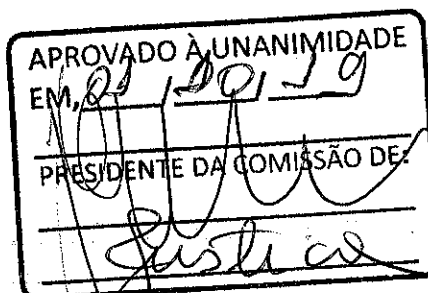 APROVADO À UNANIMIDADE
EM, / 10 / 19
PRESIDENTE DA COMISSÃO DE:
Justiça